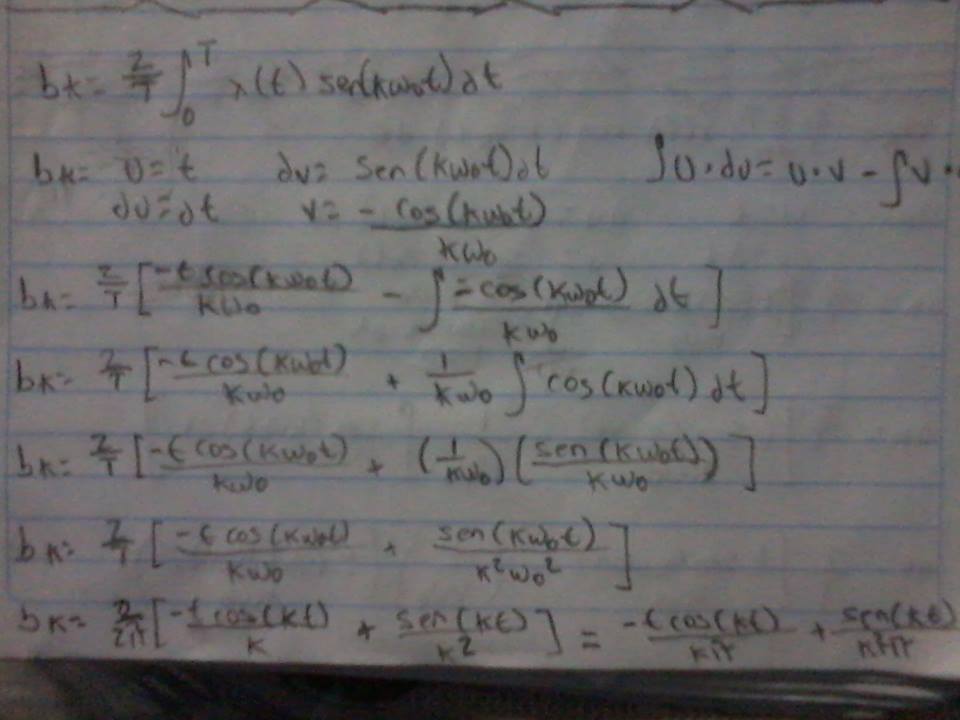 bk = 2/T ∫₀ᵀ x(t) sen(kω₀t)dt
bk = u = t dv = sen(kω₀t)dt ∫u·dv = u·v - ∫v·
du = dt v = - cos(kω₀t)/kω₀
bk = 2/T [ -t cos(kω₀t)/kω₀ - ∫ -cos(kω₀t)/kω₀ dt ]
bk = 2/T [ -t cos(kω₀t)/kω₀ + 1/kω₀ ∫ cos(kω₀t) dt ]
bk = 2/T [ -t cos(kω₀t)/kω₀ + (1/kω₀)(sen(kω₀t)/kω₀) ]
bk = 2/T [ -t cos(kω₀t)/kω₀ + sen(kω₀t)/k²ω₀² ]
bk = 2/2π [ -t cos(kt)/k + sen(kt)/k² ] = -t cos(kt)/kπ + sen(kt)/k²π